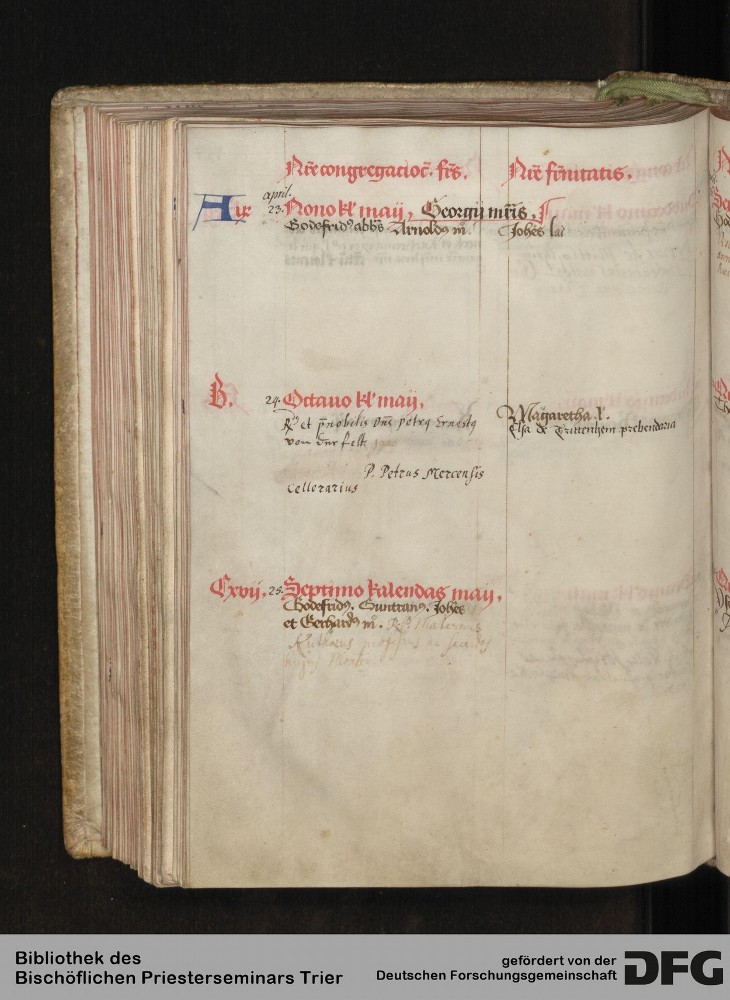 Nr̄e congregacioc̄. fr̄s.
Nr̄e fr̄nitatis.
april.
A ix 23. Nono kl' maij, Georgij mr̄is.
Godefrid9 abb̄s Arnold9 m̄.
Joh̄es lai
B. 24. Octauo kl' maij,
et p̄nobilis Dn̄s petrq Ernestq
von
Margaretha
Elsa de Trittenhem prebendaria
P. Petrus Mercensis
Cellerarius
Cxvij. 25. Septimo kalendas maij,
Godefrid9. Guntran9. Joh̄es
et Gerhard9 m̄. Maternus
professus
hujus
Bibliothek des
Bischöflichen Priesterseminars Trier
gefördert von der
Deutschen Forschungsgemeinschaft
DFG